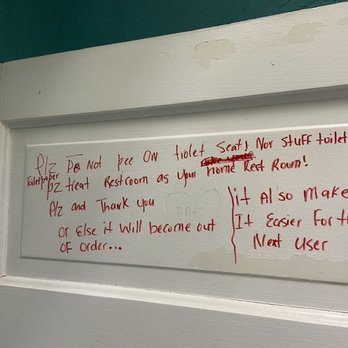 Plz Do Not pee ON toilet Seat! Nor Stuff toilet
Toiletpaper
plz treat Restroom as your Home Rest Room!
Plz and Thank you
or Else it Will become out
OF Order...
it Also Make
It Easier For th
Next User